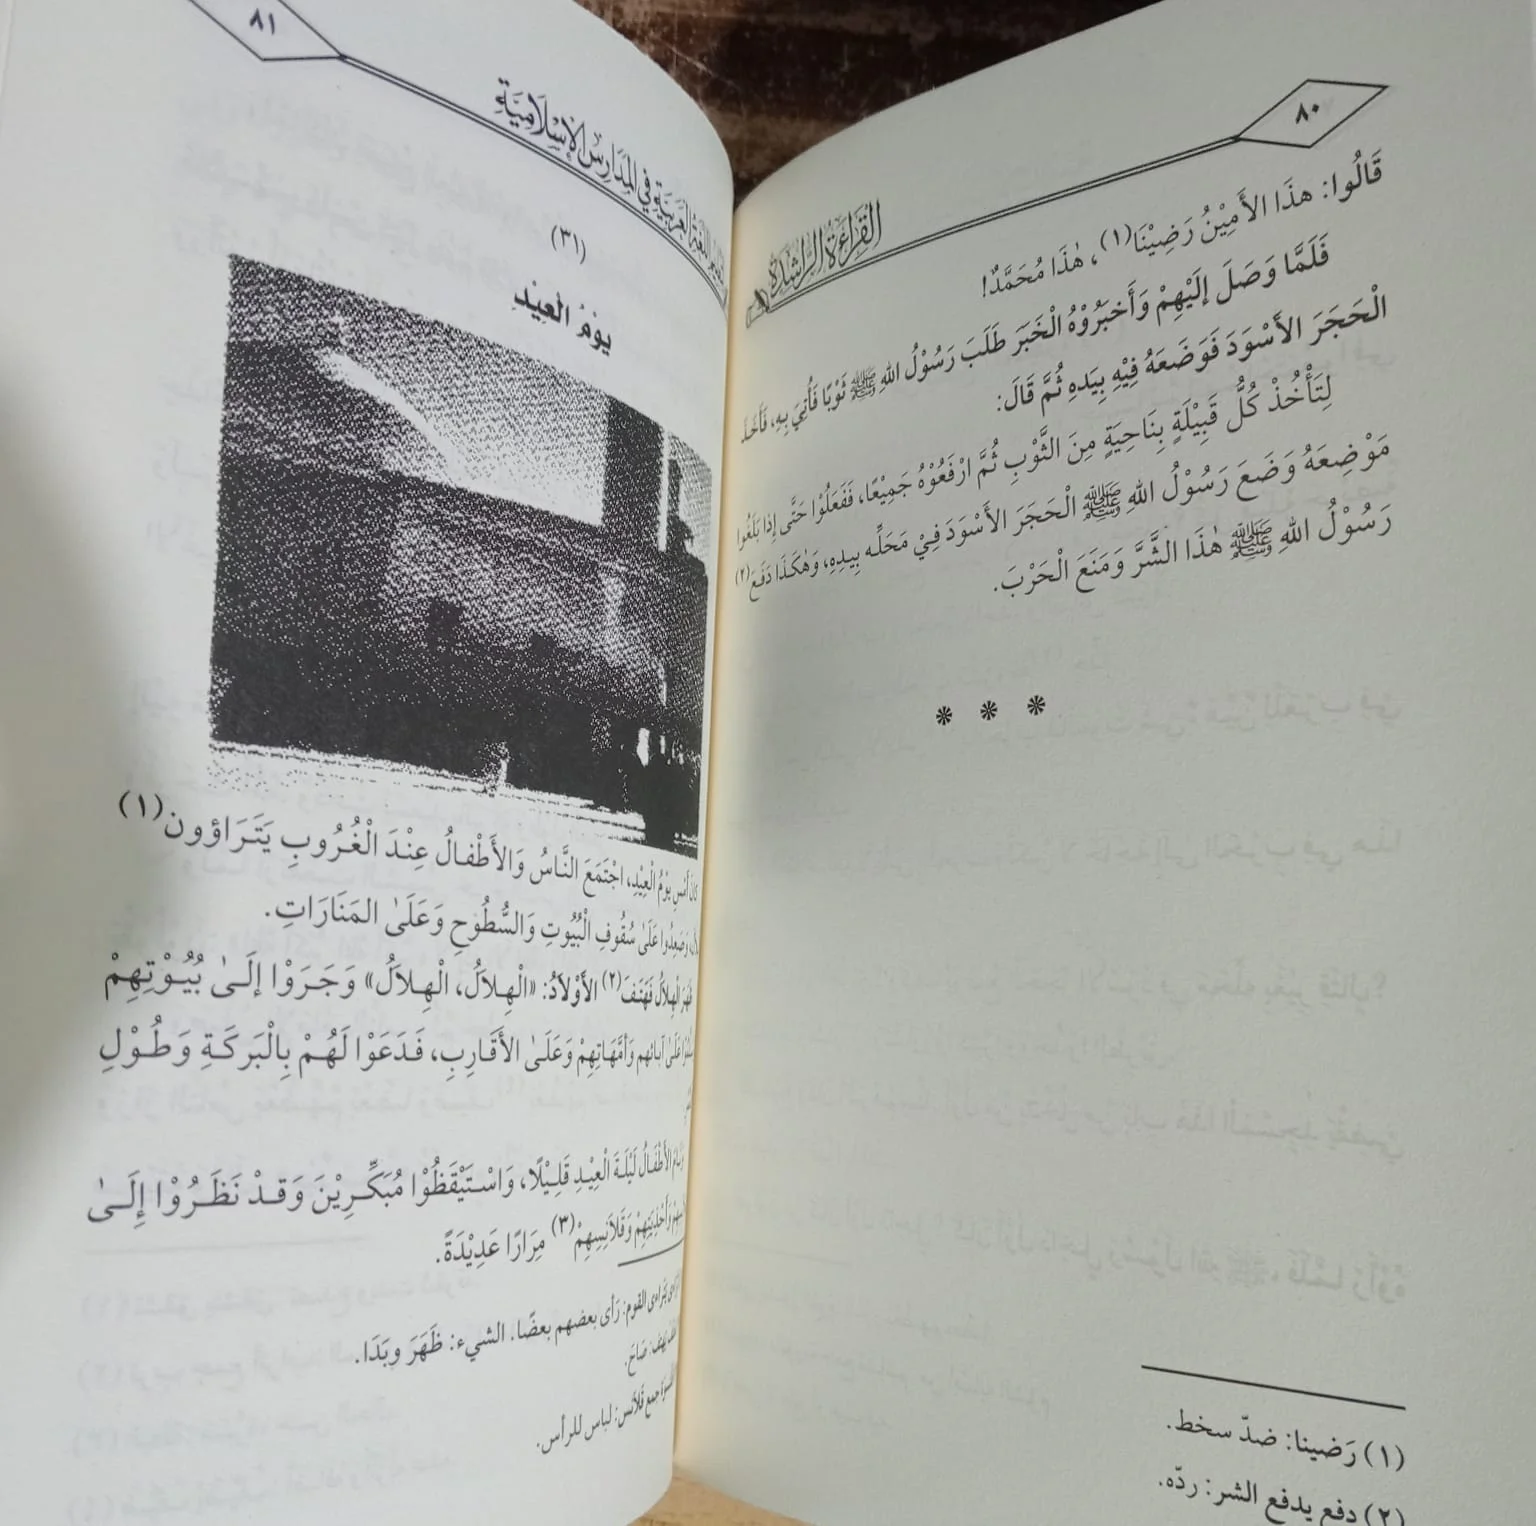 ٨٠
القِرَاءَةُ الرَّاشِدَةُ
قَالُوا: هذَا الأَمِيْنُ رَضِيْنَا(١)، هٰذَا مُحَمَّدٌ!
فَلَمَّا وَصَلَ إلَيْهِمْ وَأَخبَرُوْهُ الْخَبَرَ طَلَبَ رَسُوْلُ اللهِ ﷺ ثَوْبًا فَأُتِيَ بِهِ، فَأَخَذَ
الْحَجَرَ الأَسْوَدَ فَوَضَعَهُ فِيْهِ بِيَدِهِ ثُمَّ قَالَ:
لِتَأْخُذْ كُلُّ قَبِيْلَةٍ بِنَاحِيَةٍ مِنَ الثَّوْبِ ثُمَّ ارْفَعُوْهُ جَمِيْعًا، فَفَعَلُوْا حَتَّى إِذَا بَلَغُوا
مَوْضِعَهُ وَضَعَ رَسُوْلُ اللهِ ﷺ الْحَجَرَ الأَسْوَدَ فِيْ مَحَلِّه بِيَدِهِ، وَهٰكَذَا دَفَعَ(٢)
رَسُوْلُ اللهِ ﷺ هٰذَا الشَّرَّ وَمَنَعَ الْحَرْبَ.
* * *
(١) رَضينا: ضدّ سخط.
(٢) دفع يدفع الشر: ردّه.
٨١
اللُّغَةِ العَرَبِيَّةِ فِي المَدَارِسِ الإِسْلَامِيَّةِ
(٣١)
يَوْمُ الْعِيْدِ
كَانَ أَمْسِ يَوْمُ الْعِيْدِ، اجْتَمَعَ النَّاسُ وَالأَطْفالُ عِنْدَ الْغُرُوبِ يَتَرَاؤون(١)
وَصَعِدُوا عَلَىٰ سُقُوفِ الْبُيُوتِ وَالسُّطُوحِ وَعَلَىٰ المَنَارَاتِ.
ظَهَرَ الْهِلاَلُ فَهَتَفَ(٢) الأَوْلاَدُ: «الْهِلاَلُ، الْهِلاَلُ» وَجَرَوْا إلَىٰ بُيُوْتِهِمْ
عَلَىٰ آبائهم وَأُمَّهَاتِهِمْ وَعَلَىٰ الأَقَارِبِ، فَدَعَوْا لَهُمْ بِالْبَرَكَةِ وَطُوْلِ
الأَطْفَالُ لَيْلَةَ الْعِيْدِ قَلِيْلًا، وَاسْتَيْقَظُوْا مُبَكِّرِيْنَ وَقدْ نَظَرُوْا إِلَىٰ
وَأَحْذِيَتِهِمْ وَقَلاَنِسِهِمْ(٣) مِرَارًا عَدِيْدَةً.
يتراءى القوم: رَأى بعضهم بعضًا. الشيء: ظَهَرَ وبَدَا.
يهتف: صَاحَ.
جمع قَلاَنس: لباس للرأس.